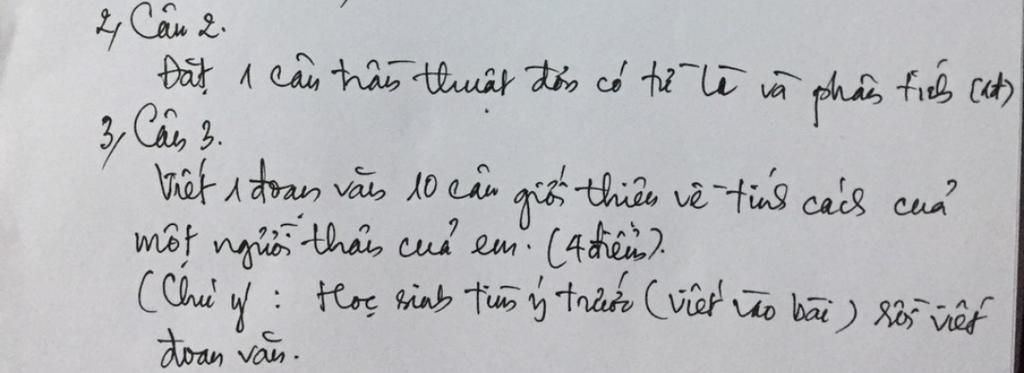 2, Câu 2.
Đặt 1 câu trần thuật đơn có từ là và phân tích (1đ)
3, Câu 3.
Viết 1 đoạn văn 10 câu giới thiệu về tính cách của
một người thân của em. (4 điểm).
(Chú ý: Học sinh tìm ý trước (viết vào bài) rồi viết
đoạn văn.